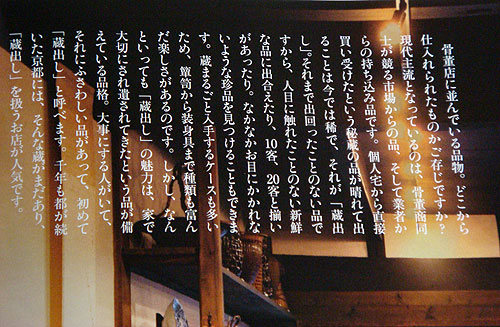 骨董店に並んでいる品物。どこから
仕入れられたものかご存じですか？
現代主流となっているのは、骨董商同
士が競る市場からの品、そして業者か
らの持ち込み品です。個人宅から直接
買い受けたという秘蔵の品が晴れて出
ることは今では稀で、それが「蔵出
し」。それまで出回ったことのない品で
すから、人目に触れたことのない新鮮
な品に出合えたり、10客、20客と揃い
があったり。なかなかお目にかかれな
いような珍品を見つけることもできま
す。蔵まるごと入手するケースも多い
ため、簞笥から装身具まで種類も富ん
だ楽しさがあるのです。しかし、なん
といっても「蔵出し」の魅力は、家で
大切にされ遺されてきたという品が備
えている品格。大事にする人がいて、
それにふさわしい品があって、初めて
「蔵出し」と呼べます。千年も都が続
いた京都には、そんな蔵がまだあり、
「蔵出し」を扱うお店が人気です。